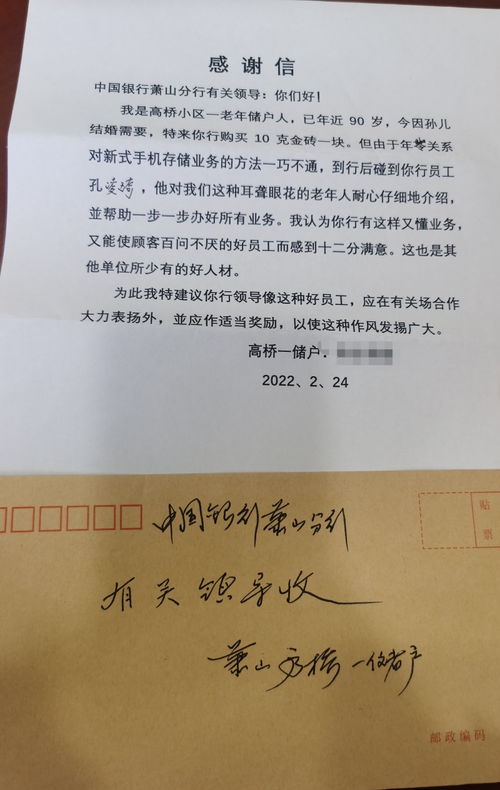 感谢信
中国银行萧山分行有关领导：你们好！
我是高桥小区一老年储户人，已年近 90 岁，今因孙儿
结婚需要，特来你行购买 10 克金砖一块。但由于年龄关系
对新式手机存储业务的方法一巧不通，到行后碰到你行员工
孔，他对我们这种耳聋眼花的老年人耐心仔细地介绍，
並帮助一步一步办好所有业务。我认为你行有这样又懂业务，
又能使顾客百问不厌的好员工而感到十二分满意。这也是其
他单位所少有的好人材。
为此我特建议你行领导像这种好员工，应在有关场合作
大力表扬外，並应作适当奖励，以使这种作风发揚广大。
高桥一储户：
2022、2、24
中国银行萧山分行
贴
票
有关领导收
萧山高桥一储户
邮政编码